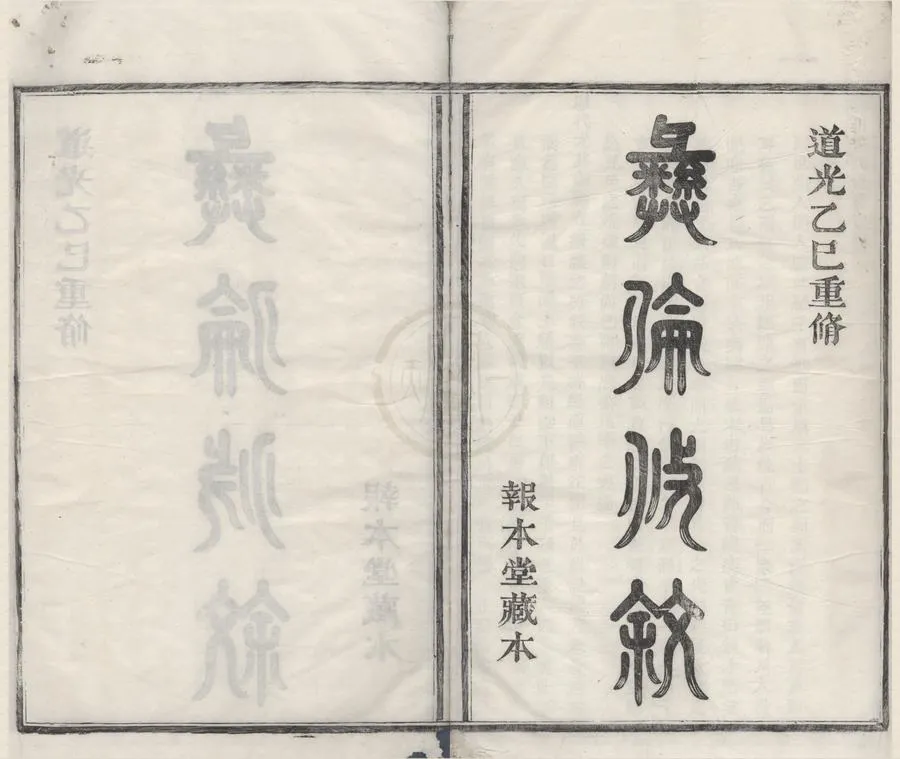 道光乙巳重脩
彝倫攸敘
報本堂藏本